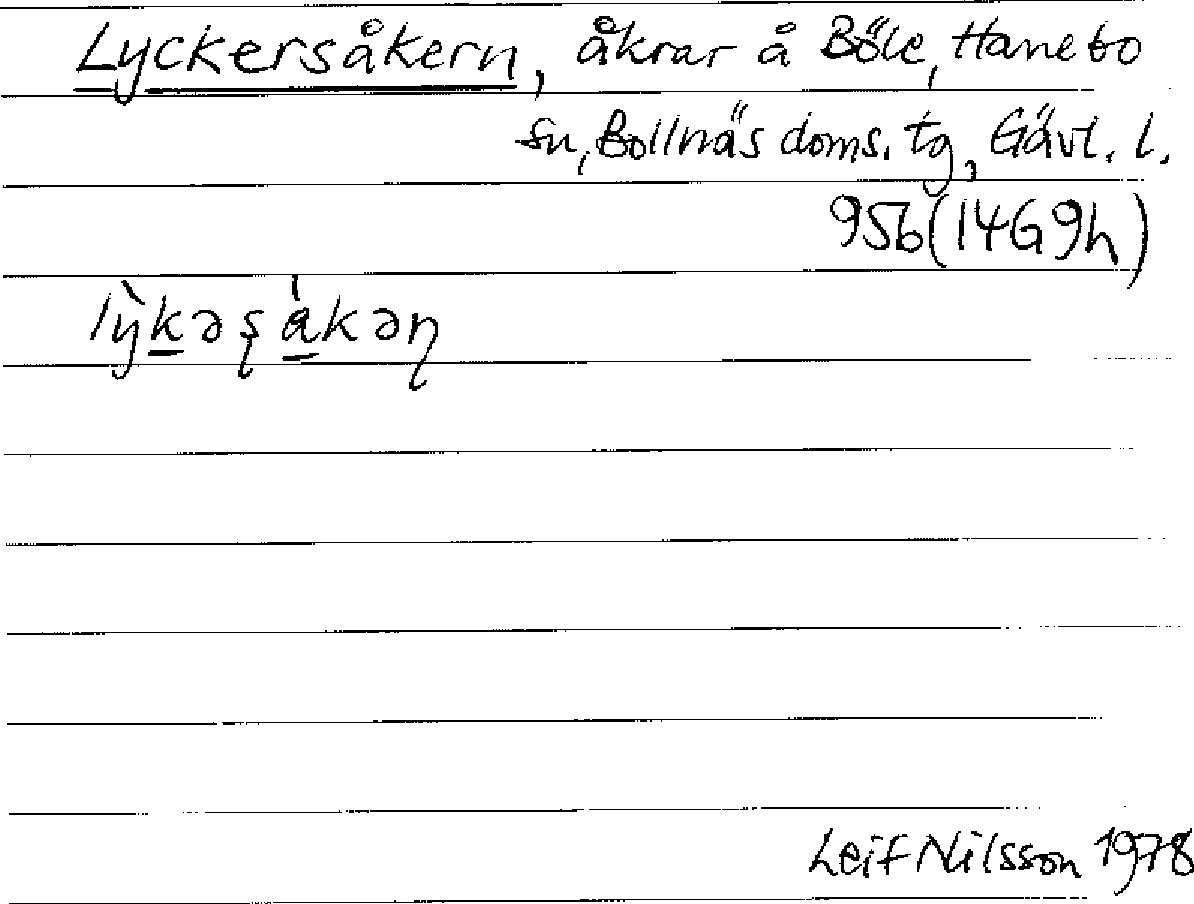 Lyckersåkern, åkrar å Böle, Hanebo
sn, Bollnäs doms. tg, Gävl. l.
95b (14G 9h)
lỳkəʂákəɳ
Leif Nilsson 1978